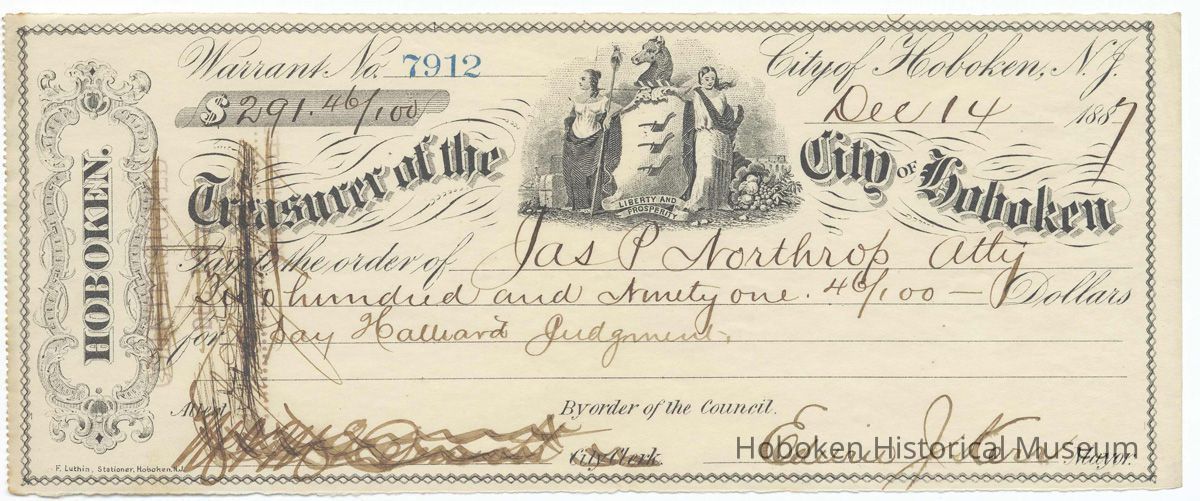 HOBOKEN.
Warrant No. 7912
City of Hoboken, N. J.
$291.46/100
Dec 14 1887
Treasurer of the City of Hoboken
LIBERTY AND PROSPERITY
Pay to the order of Jas P Northrop Atty
Two hundred and Ninety one. 46/100 — Dollars
for Jay Judgment.
Attest
By order of the Council.
City Clerk.
Edwin J. Kerr Mayor.
F. Luthin, Stationer, Hoboken, N.J.
Hoboken Historical Museum